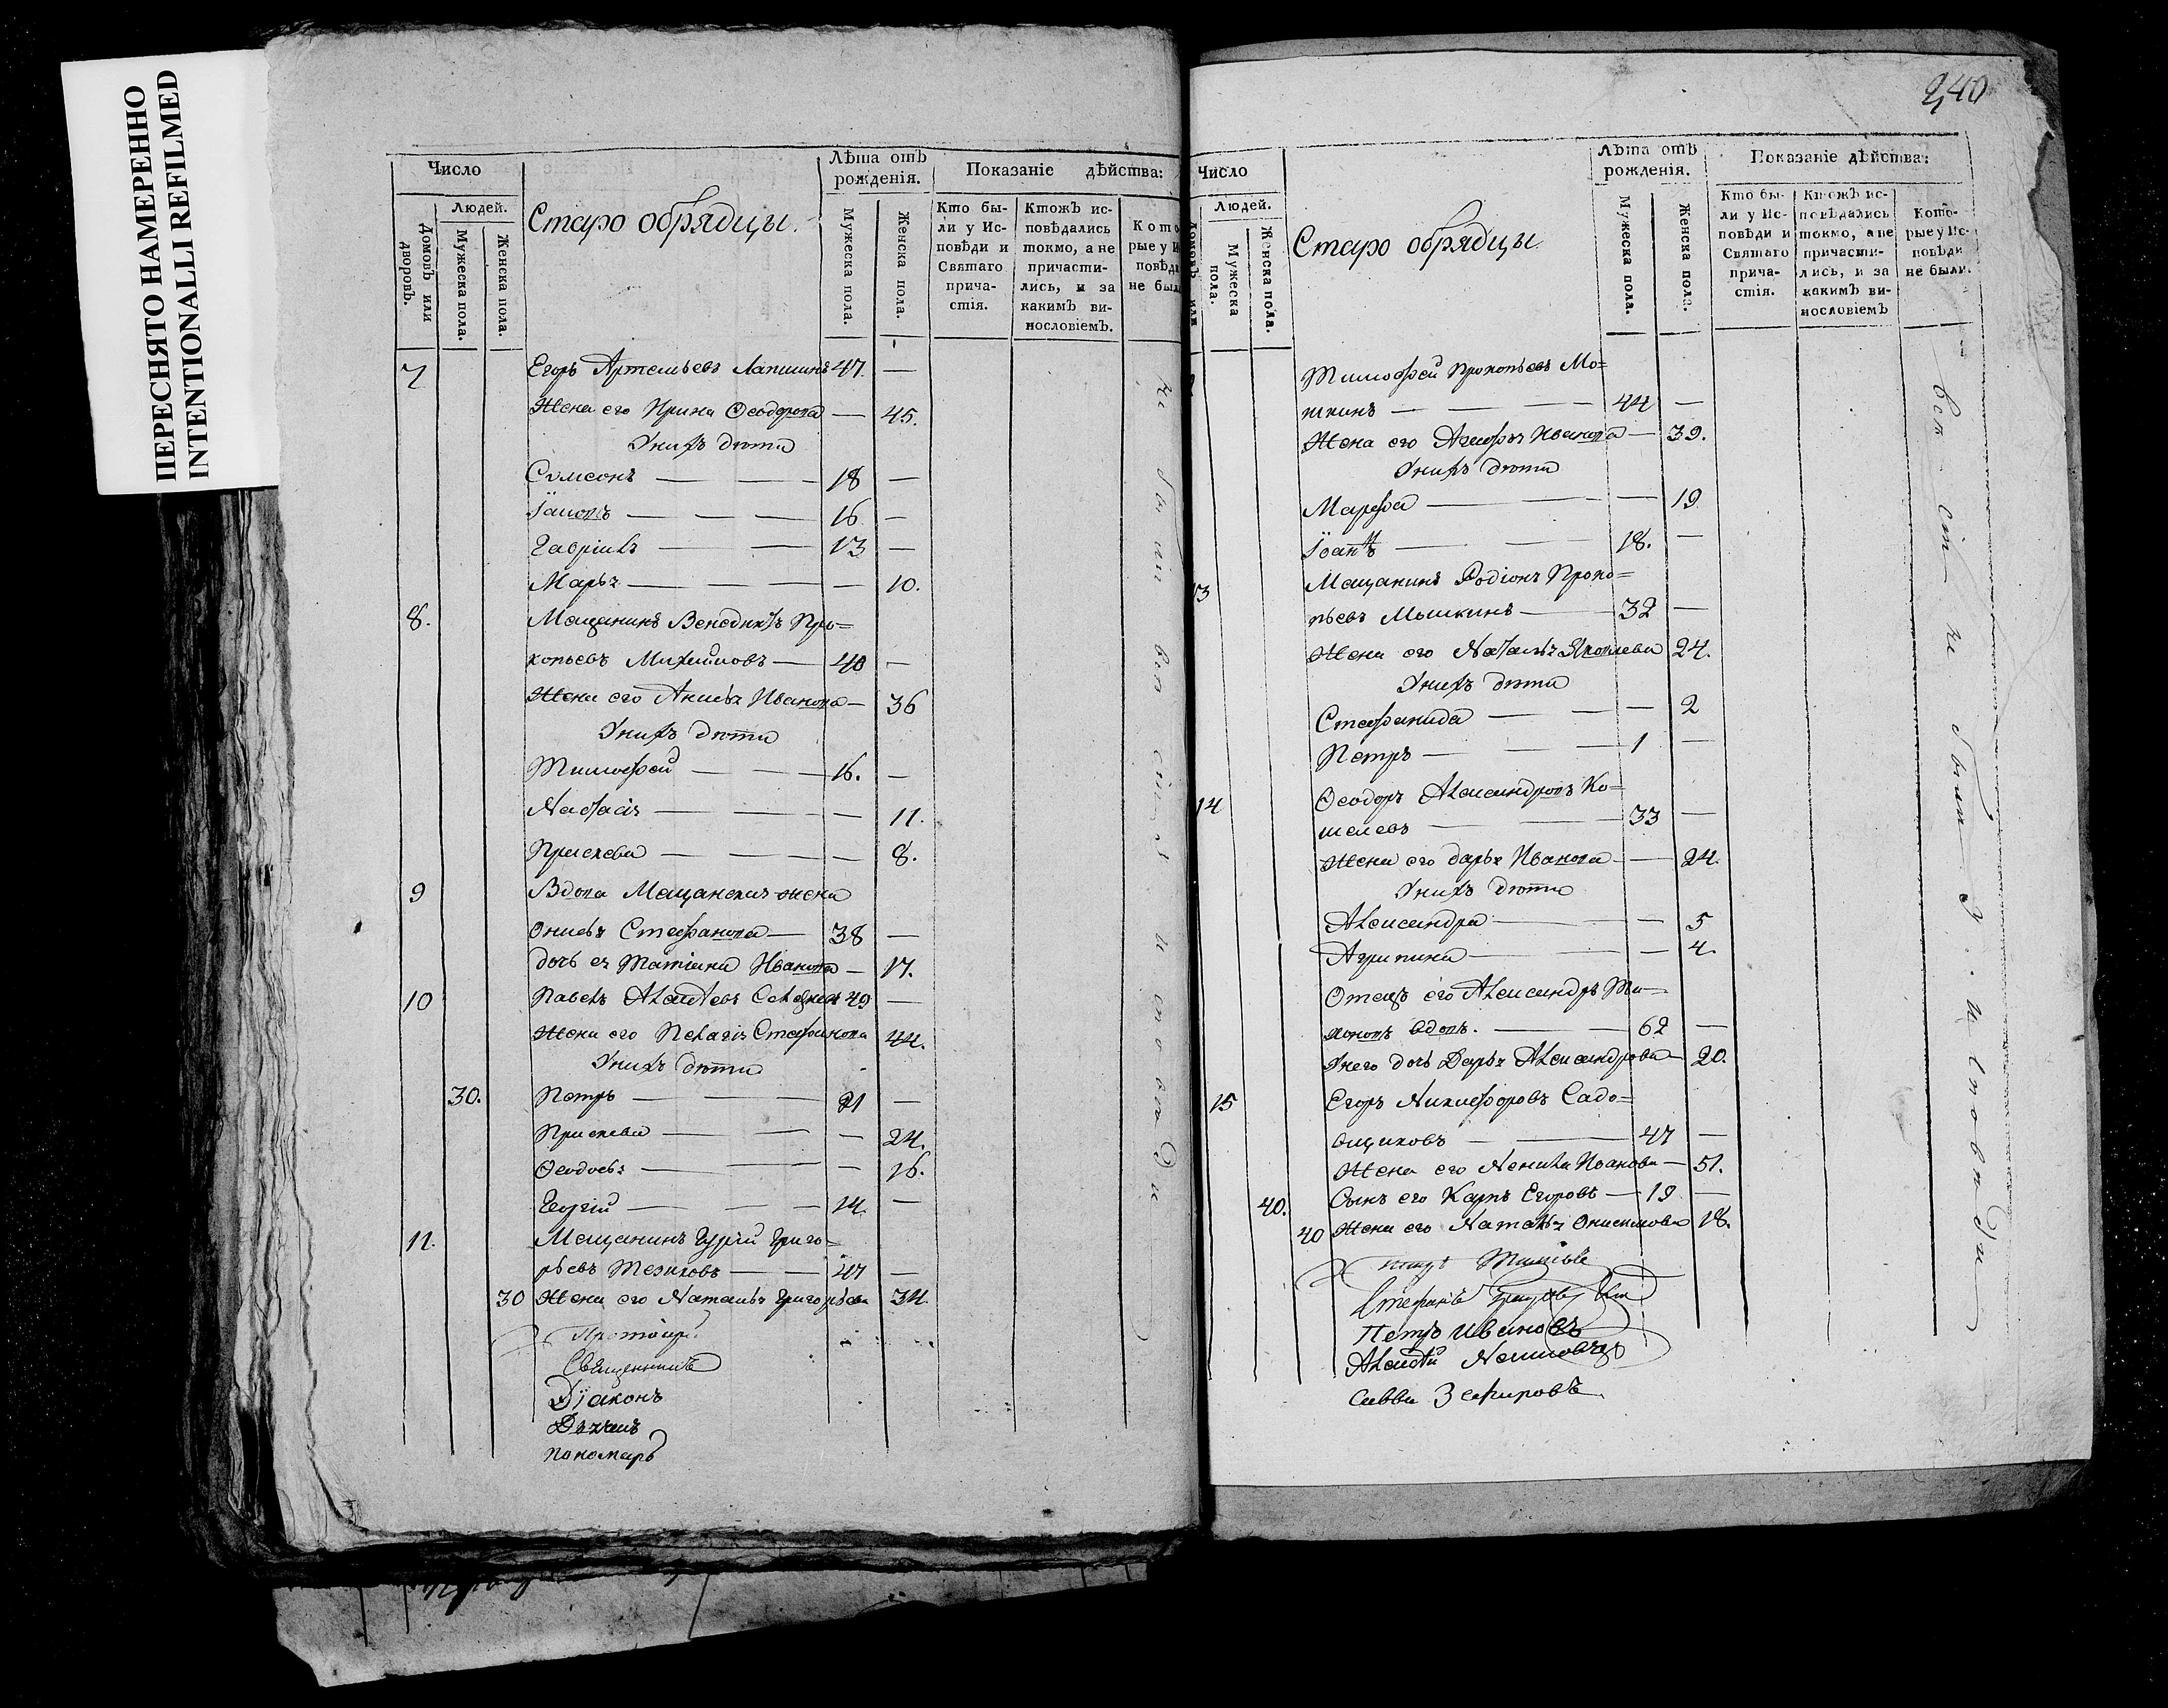 ПЕРЕСНЯТО НАМЕРЕННО
INTENTIONALLI REFILMED
Число
Людей.
Домовъ или дворовъ.
Мужеска пола.
Женска пола.
Старо обрядцы.
Лѣта отъ рожденія.
Мужеска пола.
Женска пола.
Показаніе дѣйства:
Кто бы-
ли у Ис-
повѣди и
Святаго
прича-
стія.
Ктожъ ис-
повѣдались
токмо, а не
причасти-
лись, и за
какимъ ви-
нословіемъ.
7 Егоръ Артемьевъ Лапшинъ 47. —
Жена его Ирина Ѳеодорова — 45.
У нихъ дѣти
Сѵмсонъ — 18 —
Іаковъ — 16 —
Гавріилъ — 13 —
Марья — — 10.
8. Мещанинъ Венедиктъ Про=
копьевъ — 40 —
Жена его Анисья Иванова — 36
У нихъ дѣти
Тимофей — 16. —
Настасія — — 11.
Прасковья — — 8.
9 Вдова Мещанская жена
Анисья Стефанова — 38 —
дочь ея Татіана Иванова — 17.
10 Павелъ Алексѣевъ 49 —
Жена его Пелагія Стефанова 44.
У нихъ дѣти
30. Петръ — 21 —
Прасковья — — 24.
Ѳеодосья — — 16.
Георгій — 14. —
11. Мещанинъ Гурій Григо-
рьевъ — 47 —
30 Жена его Наталья Григорьева 34.
Протоіерей
Священникъ
Діаконъ
Дьячекъ
Пономарь
240
Число
Людей.
Мужеска пола.
Женска пола.
Старо обрядцы
Лѣта отъ
рожденія.
Мужеска пола.
Женска пола.
Показаніе дѣйства:
Кто бы-
ли у Ис-
повѣди и
Святаго
прича-
стія.
Ктожъ ис-
повѣдались
токмо, а не
причасти-
лись, и за
какимъ ви-
нословіемъ
Кото-
рые у Ис-
повѣди
не были.
Тимофей Прокопьевъ Мо=
шкинъ — 44 —
Жена его Иванова — 39.
У нихъ дѣти
Марфа — — 19
Іоаннъ — 18. —
13 Мещанинъ Родіонъ Проко=
пьевъ Мышкинъ — 32 —
Жена его Наталья Яковлева 24.
У нихъ дѣти
Стефанида — — 2
Петръ — 1 —
14 Ѳеодоръ Александровъ Ко=
шелевъ — 33 —
Жена его Дарья Иванова — 24.
У нихъ дѣти
Александра — — 5
Агрипина — — 4.
Отецъ его Александръ Ти=
хоновъ вдовъ. — 62 —
У него дочь Дарья Александрова — 20.
15 Егоръ Никифоровъ Садо=
вщиковъ — 47 —
Жена его Ненила Иванова — 51.
40. Сынъ его Карпъ Егоровъ — 19 —
40 Жена его Наталья Онисимова 18.
Стефанъ
Петръ Ивановъ
Алексѣй
Савва Зефировъ